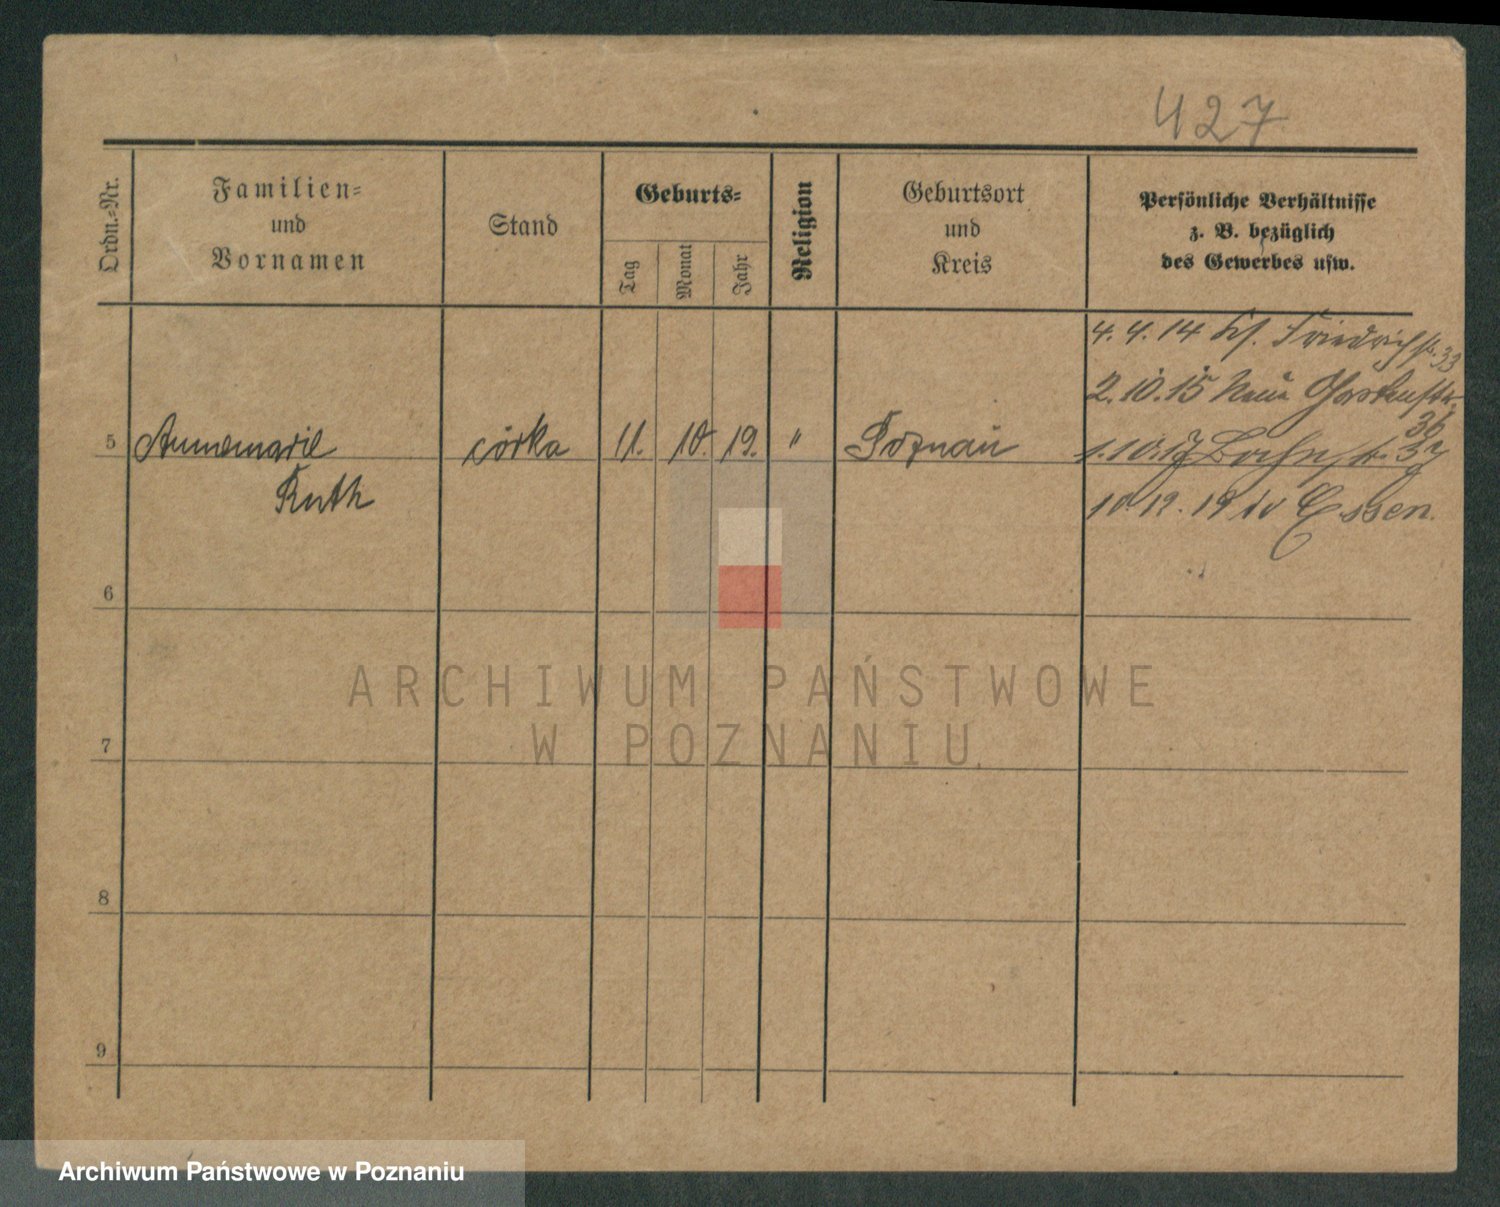 427
Ordn.=Nr.
Familien=
und
Vornamen
Stand
Geburts=
Tag
Monat
Jahr
Religion
Geburtsort
und
Kreis
Persönliche Verhältnisse
z. B. bezüglich
des Gewerbes usw.
4. 4. 14 Friedrichstr. 33
2. 10. 15 Neue Gartenstr.
36
5 Annemarie córka 11. 10. 19. " Poznań 1. 10. 17 Bahnstr. 37
Ruth 10. 12. 19 Essen.
6
7
8
9
ARCHIWUM PAŃSTWOWE
W POZNANIU
Archiwum Państwowe w Poznaniu